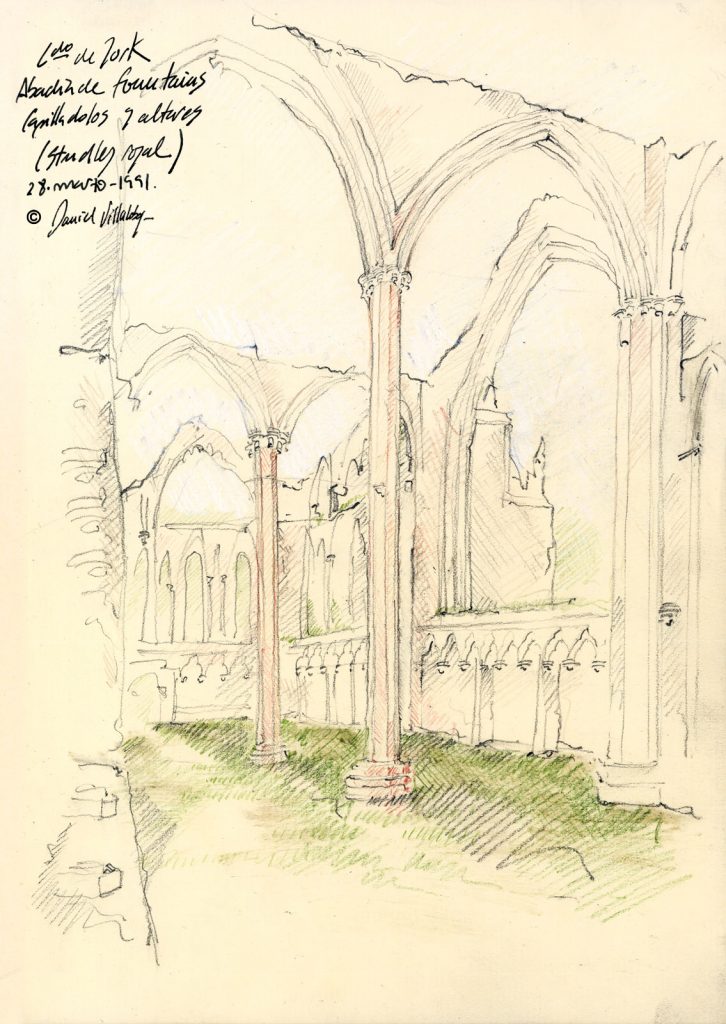 Cdo de York
Abadía de fountains
Capilla dlos 9 altares
(Studley royal)
28-marzo-1991.
© Daniel Villalobos